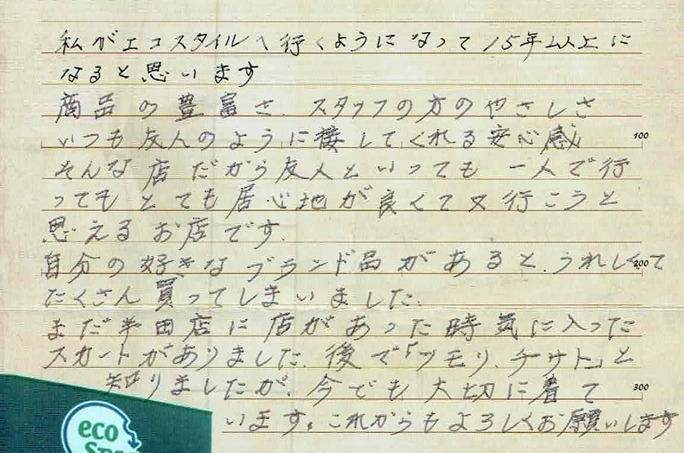 私がエコスタイルへ行くようになって15年以上に
なると思います
商品の豊富さ スタッフの方のやさしさ
いつも友人のように接してくれる安心感
100
そんな店だから友人といっても一人で行
ってもとても居心地が良くて又行こうと
思えるお店です.
自分の好きなブランド品があると、うれしくて
200
たくさん買ってしまいました.
まだ半田店に店があった時気に入った
スカートがありました. 後で「ツモリ.チサト」と
知りましたが、今でも大切に着て
300
います。これからもよろしくお願いします
eco